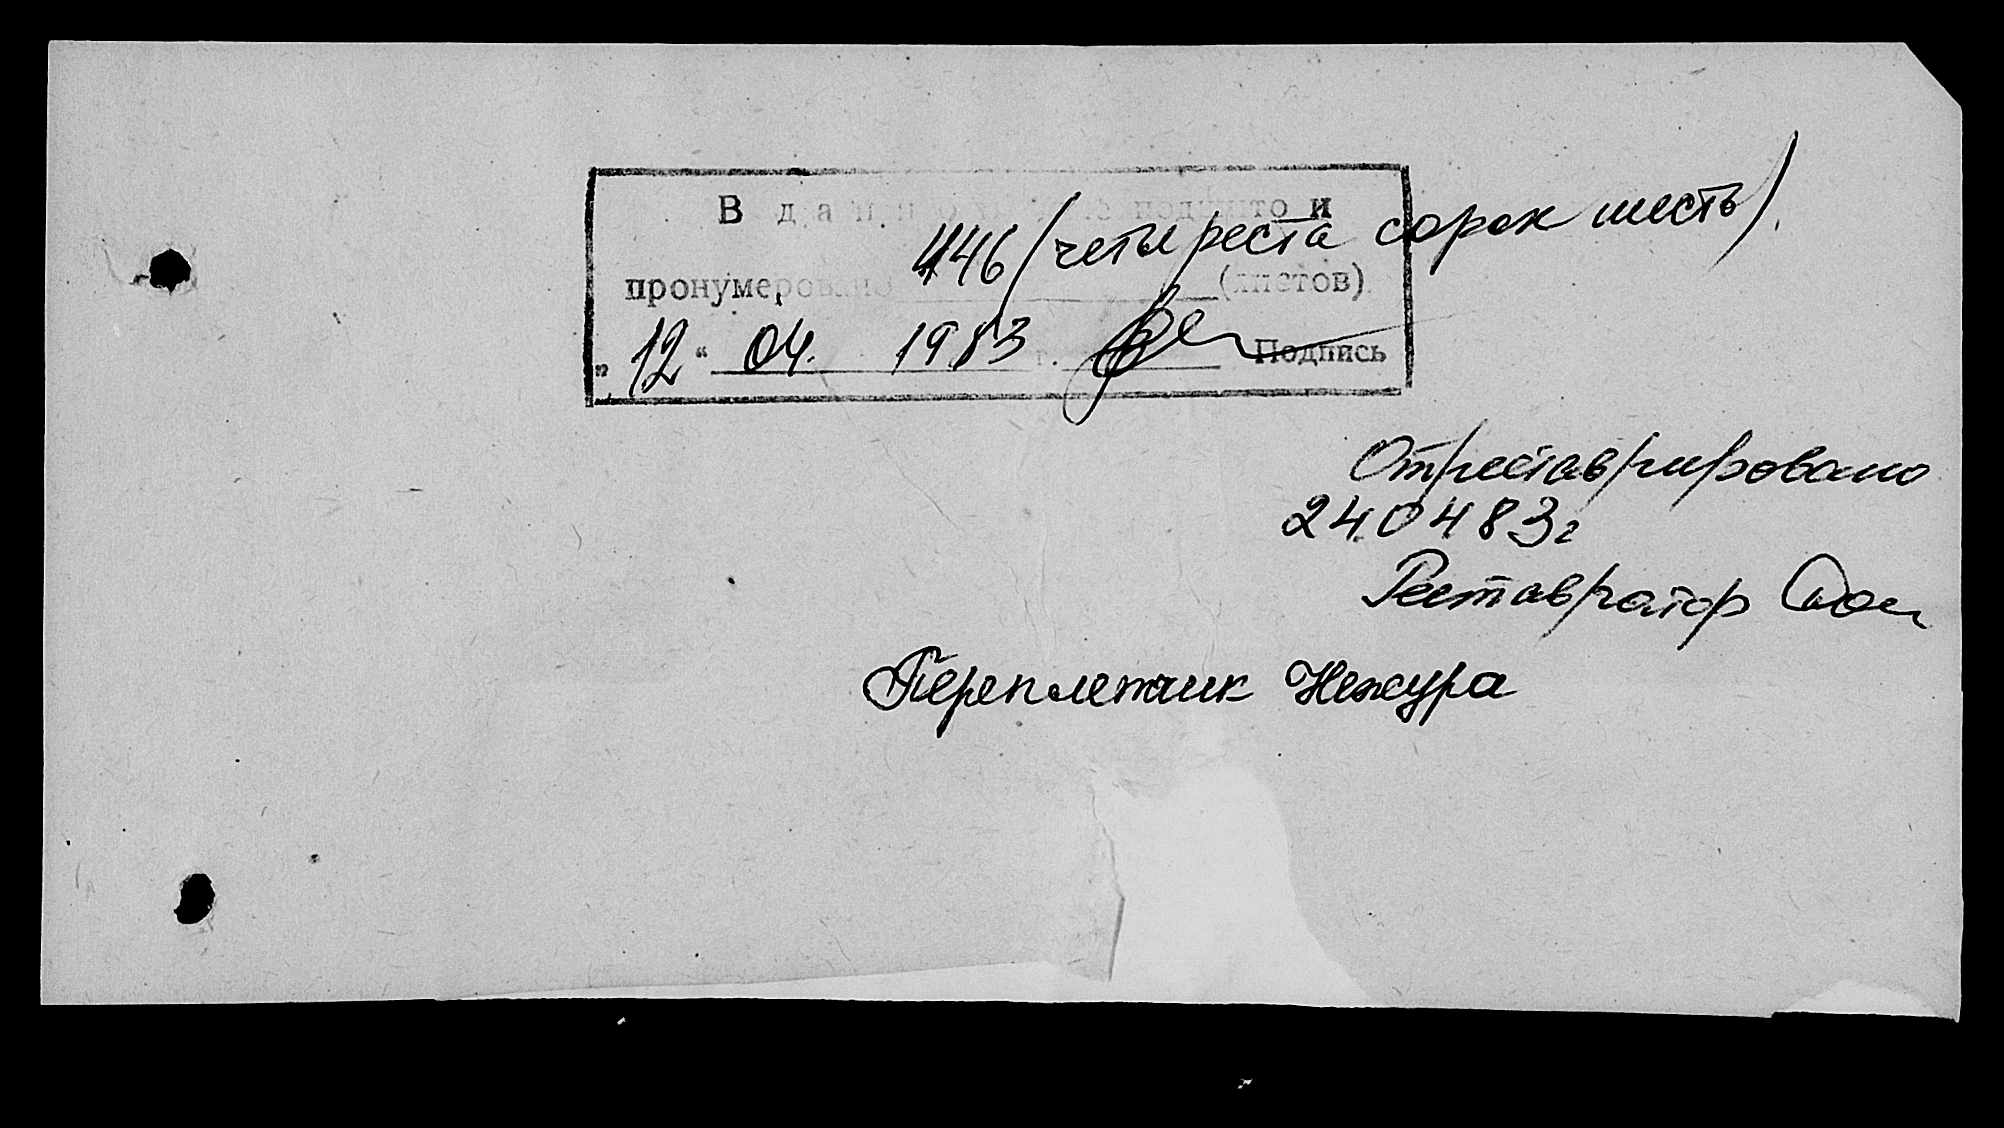 В данном деле подшито и
пронумеровано 446 (четыреста сорок шесть) (листов)
„12“ 04. 1983 г. Подпись
Отреставрировано
240483г
Реставратор
Переплетчик Нежура